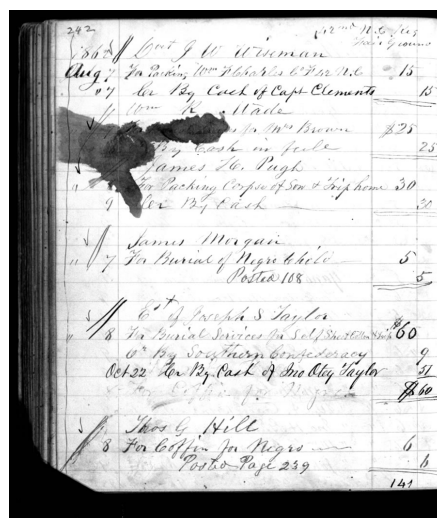 242
42nd N.C. Reg
Fair Ground
1862 Capt J W Wiseman
Aug 7 For Packing Wm F Charles Co N.C. 15
" 7 Cr By Cash of Capt Clements 15
Wm R. Wade
for Mrs Brown $25
By Cash in full 25
James H. Pugh
" 9 For Packing Corpse of Son & Trip home 30
9 Cr By Cash 30
James Morgan
" 7 For Burial of Negro Child 5
Posted 108 5
Est of Joseph S Taylor
" 8 For Burial Services for Self $60
Cr By Southern Confederacy 9
Oct 22 Cr By Cash of Jno Otey Taylor 51
$60
Thos G Hill
8 For Coffin for Negro 6
Posted Page 239 6
141